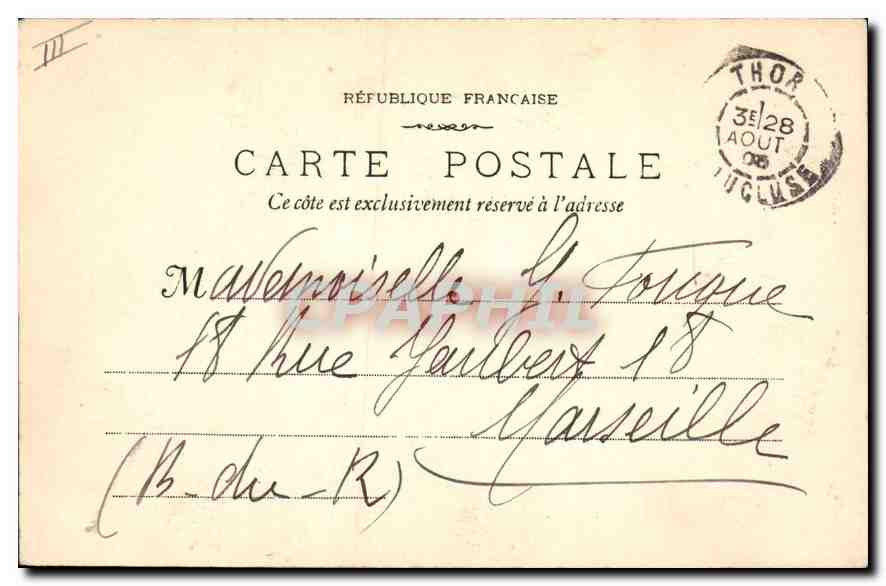 III
RÉPUBLIQUE FRANÇAISE
CARTE POSTALE
Ce côté est exclusivement réservé à l'adresse
THOR
3E 28
AOUT
05
VAUCLUSE
CPAPHIL
Mademoiselle G. Fouque
18 Rue Jaubert 18
Marseille
(B-du-R)